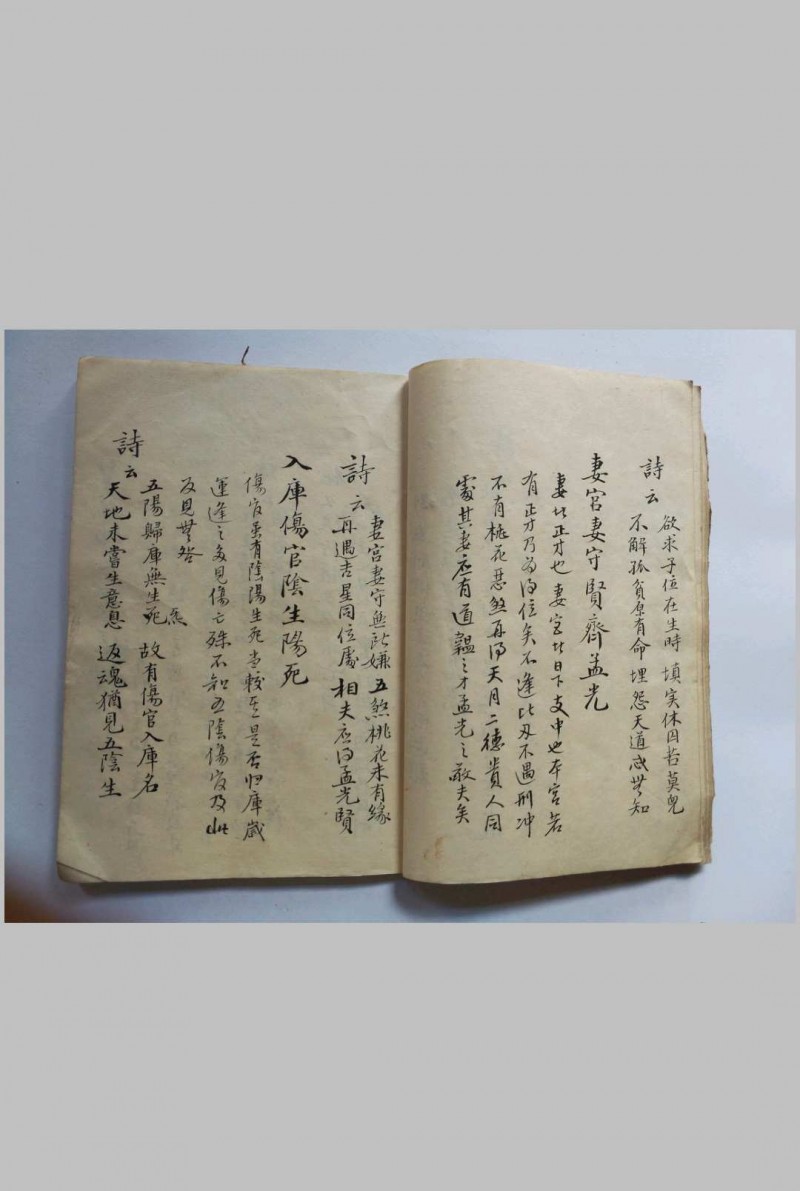 詩云 欲求子位在生時 填实休囚苦莫兒
不解孤貧原有命 埋怨天道感無知
妻宮妻守賢齊孟光
妻比正才也 妻宮比日下支中也 本宮若
有正才乃為得位矣 不逢比刃不遇刑冲
不有桃花惡煞 再得天月二德貴人同
處 其妻应有道韞之才孟光之敬夫矣
詩云 妻宮妻守無妨嫌 五煞桃花未有緣
再遇吉星同位處 相夫应得孟光賢
入庫傷官陰生陽死
傷官虽有陰陽生死 当較其是否归庫 歲
運逢之多見傷亡 殊不知五陰傷官及此
反見無咎
詩云 五陽歸庫無生死 焉 故有傷官入庫名
天地未嘗生意息 返魂猶見五陰生